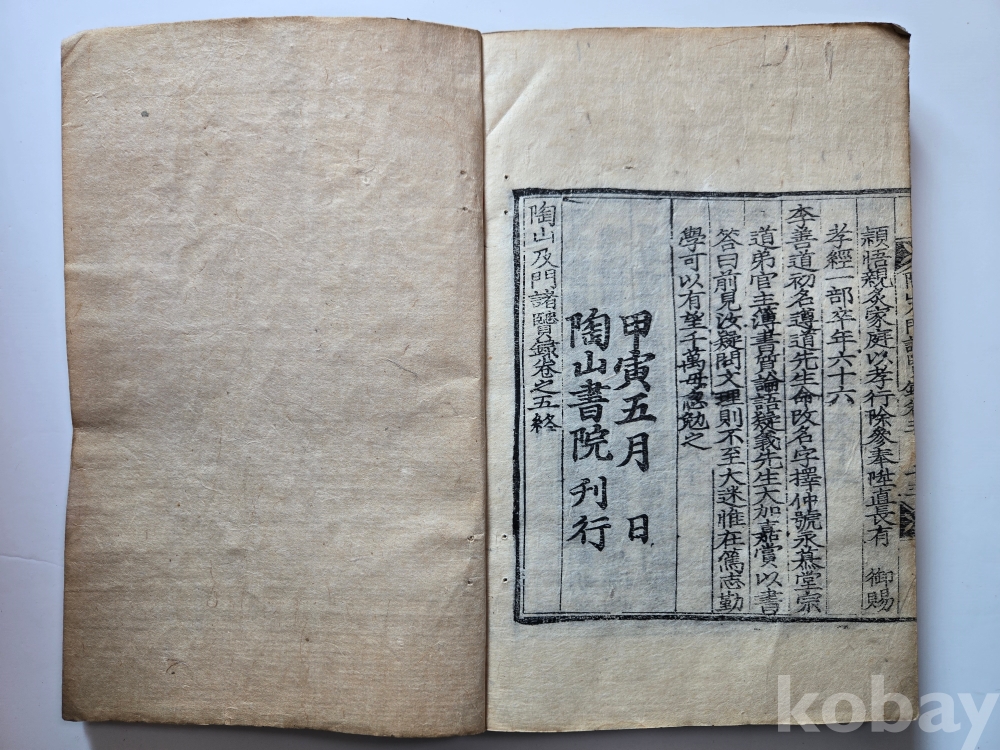 穎悟親炙家庭以孝行除參奉陞直長有 御賜
孝經一部卒年六十六
李善道初名遵道先生命改名字擇仲號永慕堂宗
道弟官主簿書質論語疑義先生大加嘉賞以書
答曰前見汝疑問文理則不至大迷惟在篤志勤
學可以有望千萬毋怠勉之
甲寅五月 日
陶山書院 刊行
陶山及門諸賢錄卷之五終
kobay